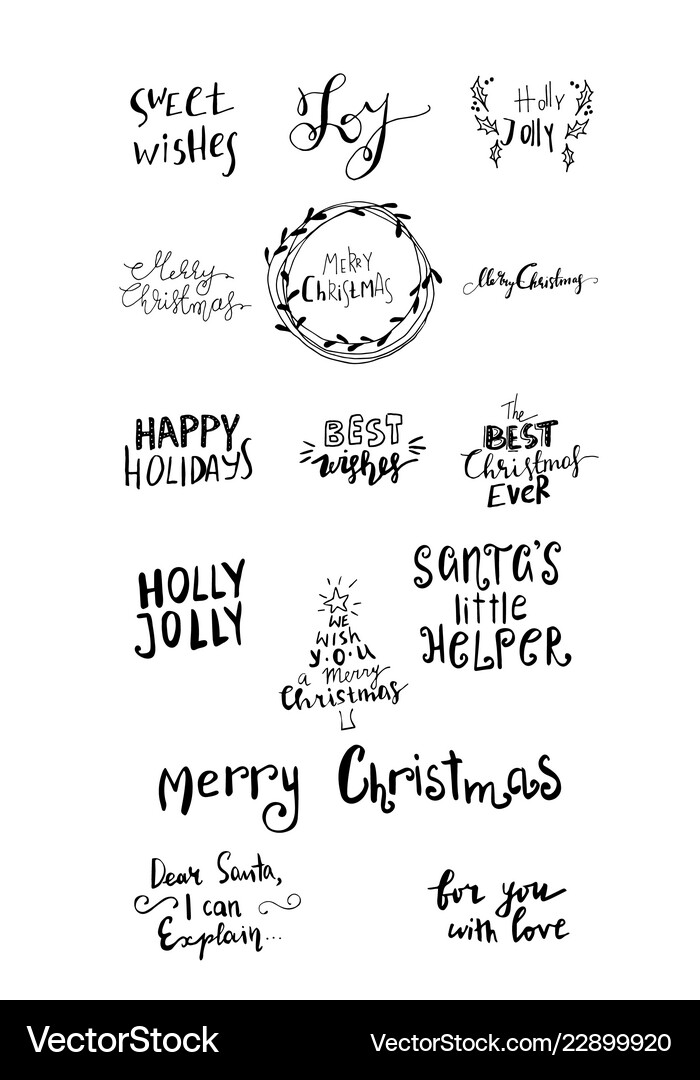 Sweet
wishes
Joy
Holly
Jolly
Merry
Christmas
MERRY
ChRISTMAS
Merry Christmas
HAPPY
HOLIDAYS
BEST
wishes
The
BEST
Christmas
EVER
HOLLY
JOLLY
WE
wish
y.o.u
a merry
Christmas
SANTA'S
little
HELPER
Merry Christmas
Dear Santa,
I can
Explain...
for you
with love
VectorStock®
VectorStock.com/22899920